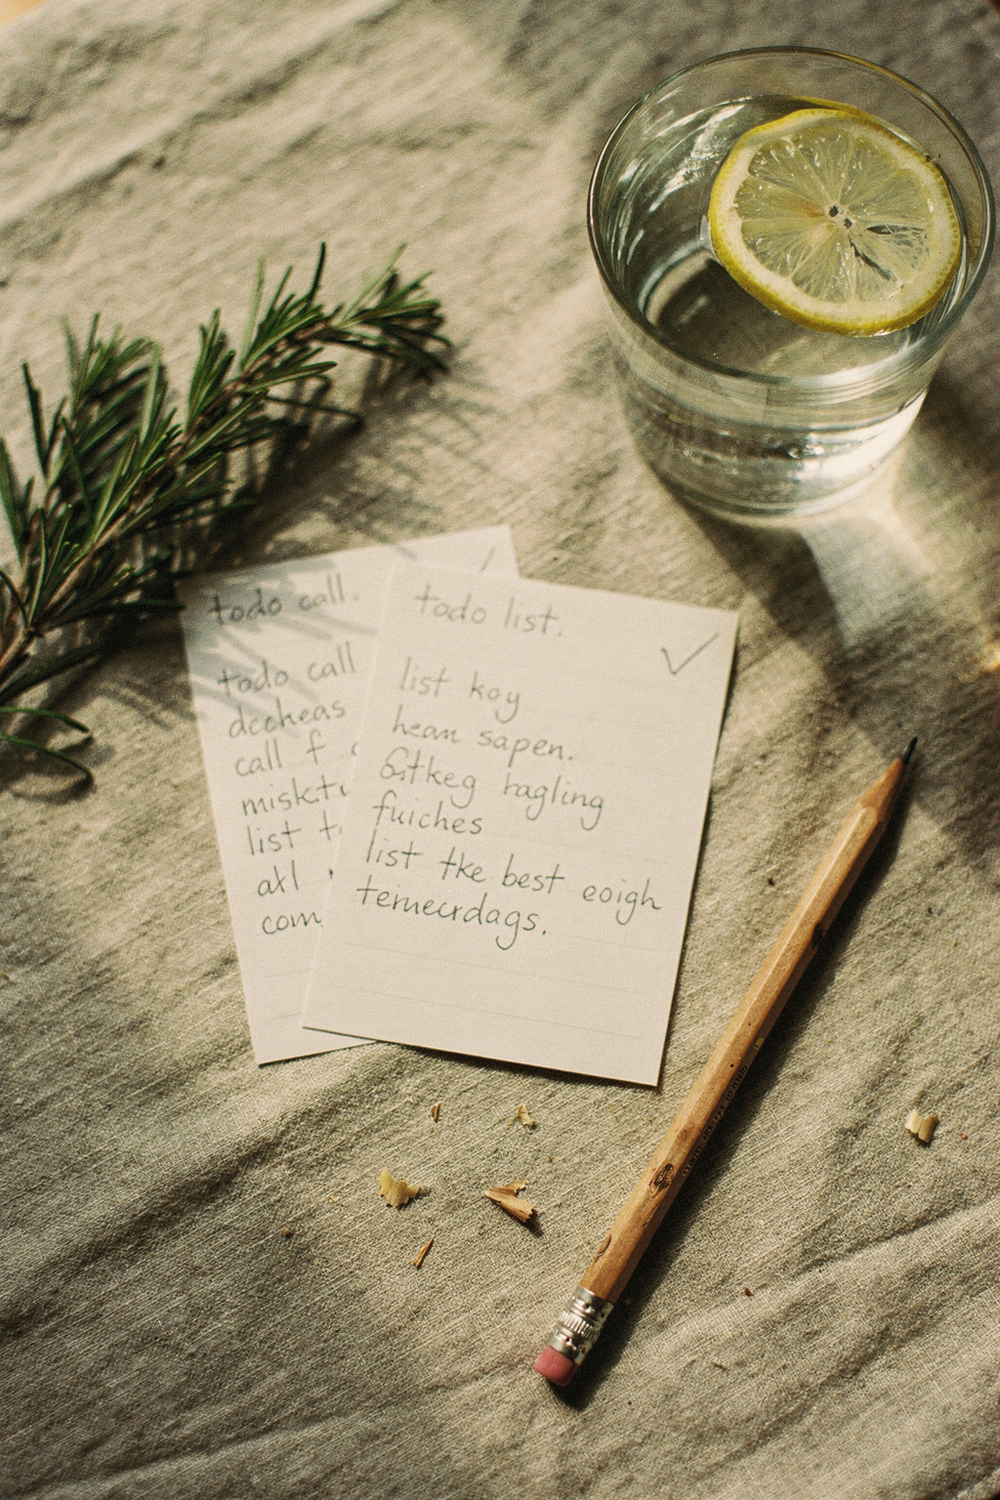 todo call.
todo call
dccheas
call f
miskti
list t
akl
com
todo list.
list koy
hean sapen.
hagling
fuiches
list tke best eoigh